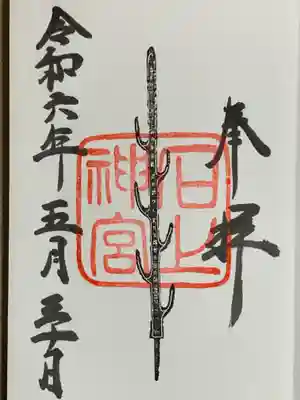 奉拝
石上
神宮
令和六年五月三十日